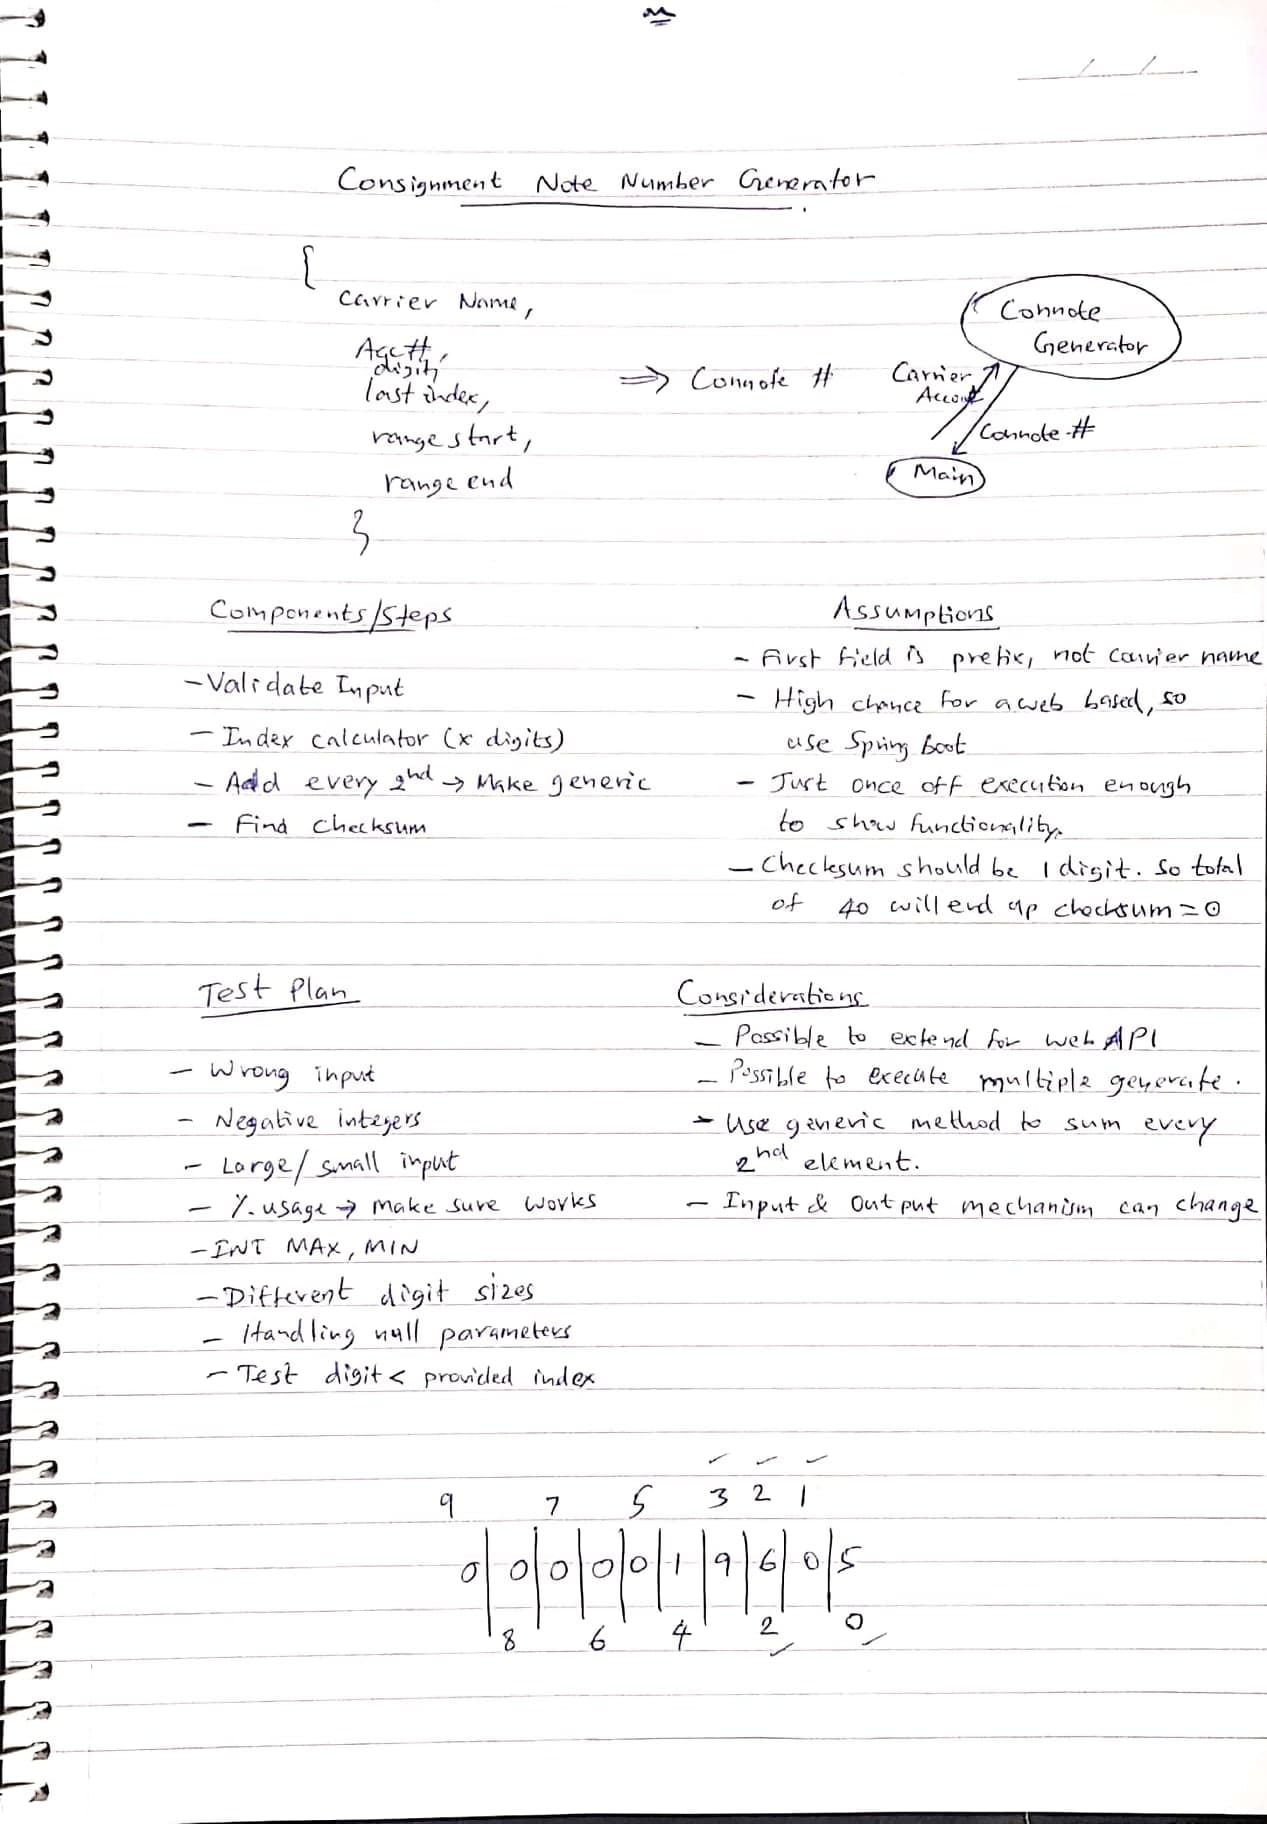 Consignment Note Number Generator
{
Carrier Name,
Acc#,
digits
last index,
range start,
range end
}
⇒ Connote #
Connote
Generator
Carrier
Account
Connote #
Main
Components/Steps
- Validate Input
- Index calculator (x digits)
- Add every 2nd → Make generic
- Find Checksum
Assumptions
- First field is prefix, not carrier name
- High chance for a web based, so
use Spring boot
- Just once off execution enough
to show functionality.
- Checksum should be 1 digit. So total
of 40 will end up checksum = 0
Test Plan
- Wrong input
- Negative integers
- Large/small input
- % usage → Make sure works
- INT MAX, MIN
- Different digit sizes
- Handling null parameters
- Test digit < provided index
Considerations
- Possible to extend for web API
- Possible to execute multiple generate.
- Use generic method to sum every
2nd element.
- Input & Output mechanism can change
9 7 5 3 2 1
0|0|0|0|0|1|9|6|0|5
8 6 4 2 0